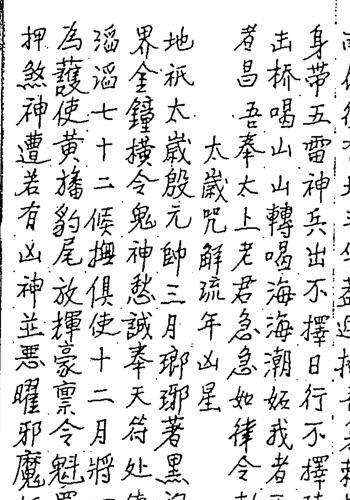 身带五雷神兵出不擇日行不擇
击桥喝山山轉喝海海潮妬我者
者昌吾奉太上老君急急如律令
太歲咒解流年凶星
地祇太歲殷元帥三月瑯琊著黑
界全鐘橫令鬼神愁誠奉天符处
滔滔七十二候撫俱使十二月將
為護使黃旛豹尾放揮豪禀令魁
押煞神遭若有凶神並惡曜邪魔